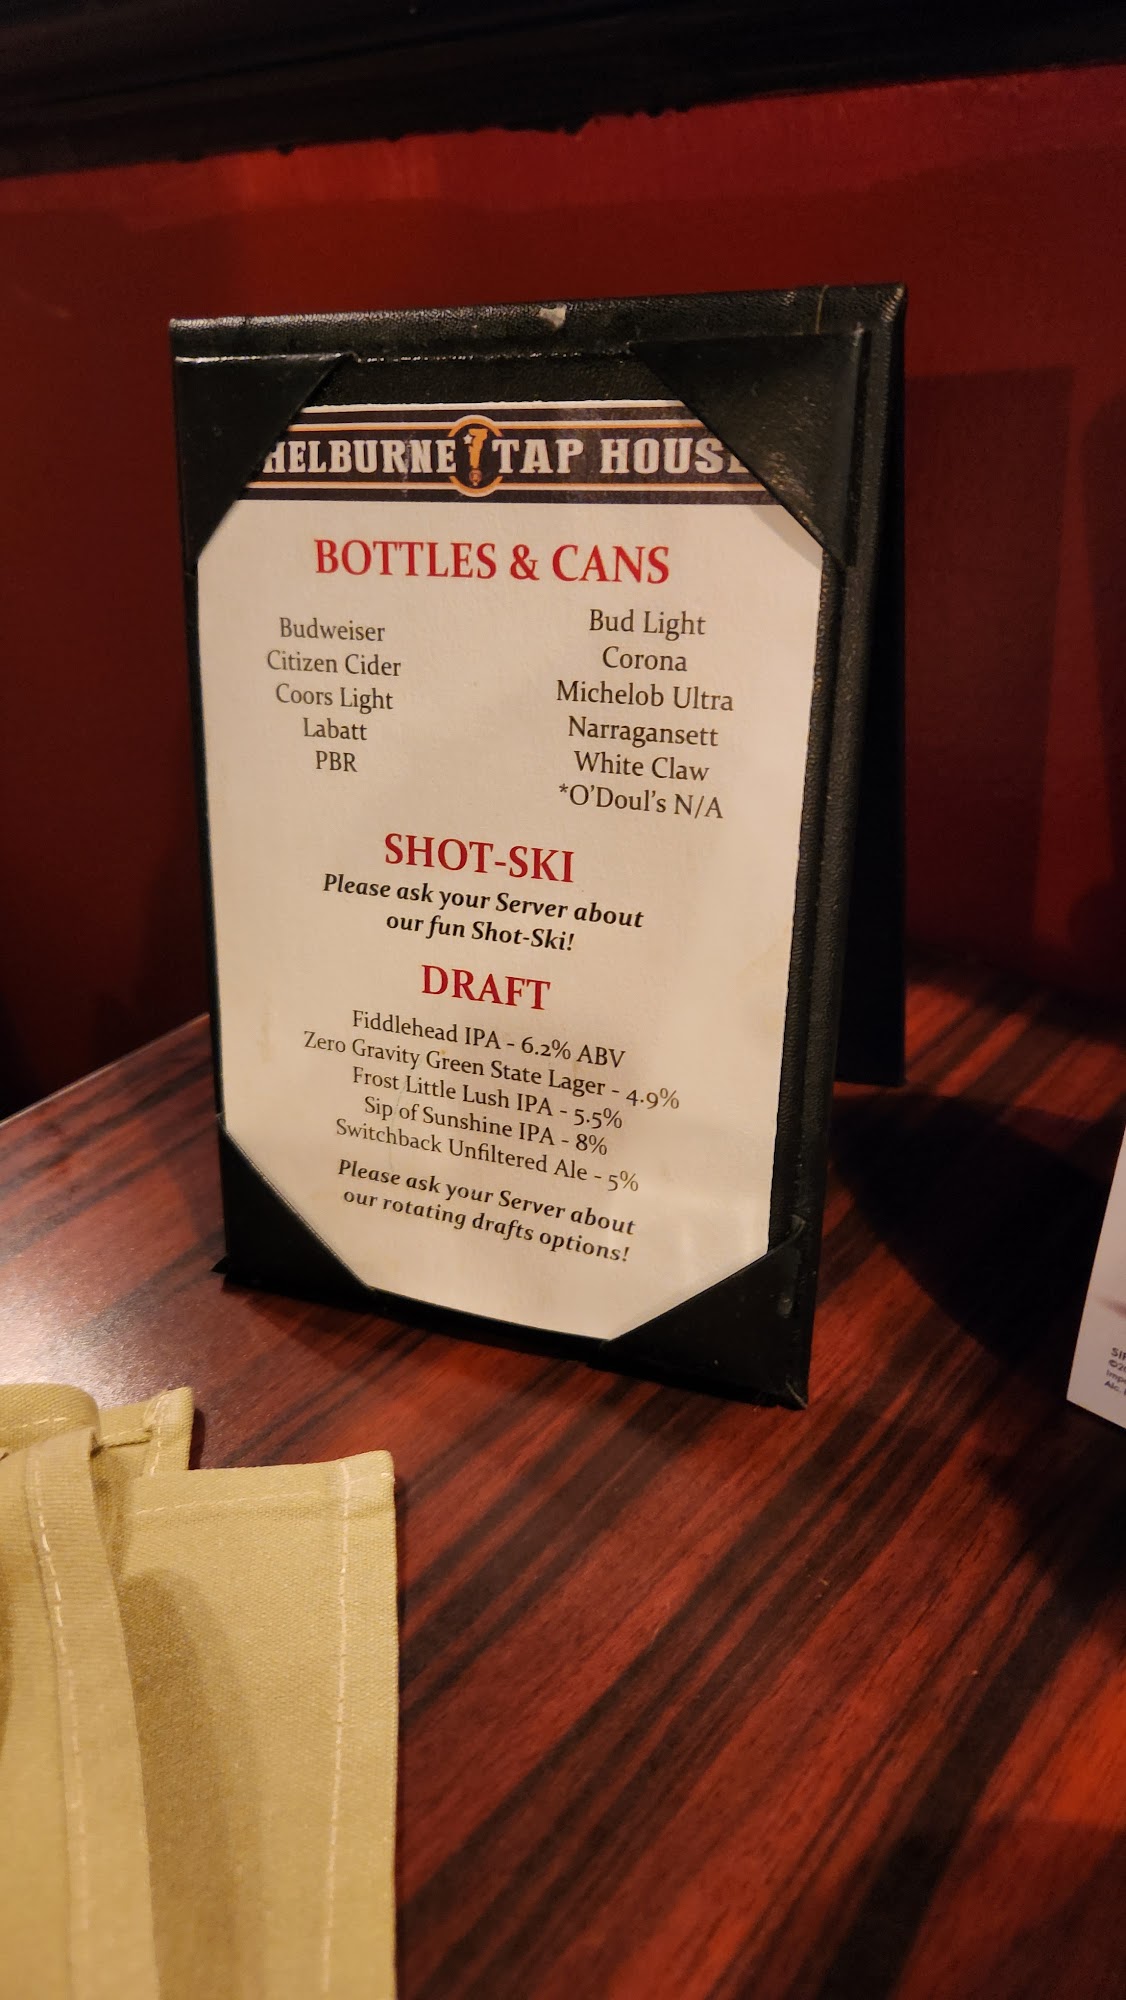 HELBURNE TAP HOUS
BOTTLES & CANS
Budweiser
Citizen Cider
Coors Light
Labatt
PBR
Bud Light
Corona
Michelob Ultra
Narragansett
White Claw
*O'Doul's N/A
SHOT-SKI
Please ask your Server about
our fun Shot-Ski!
DRAFT
Fiddlehead IPA - 6.2% ABV
Zero Gravity Green State Lager - 4.9%
Frost Little Lush IPA - 5.5%
Sip of Sunshine IPA - 8%
Switchback Unfiltered Ale - 5%
Please ask your Server about
our rotating drafts options!